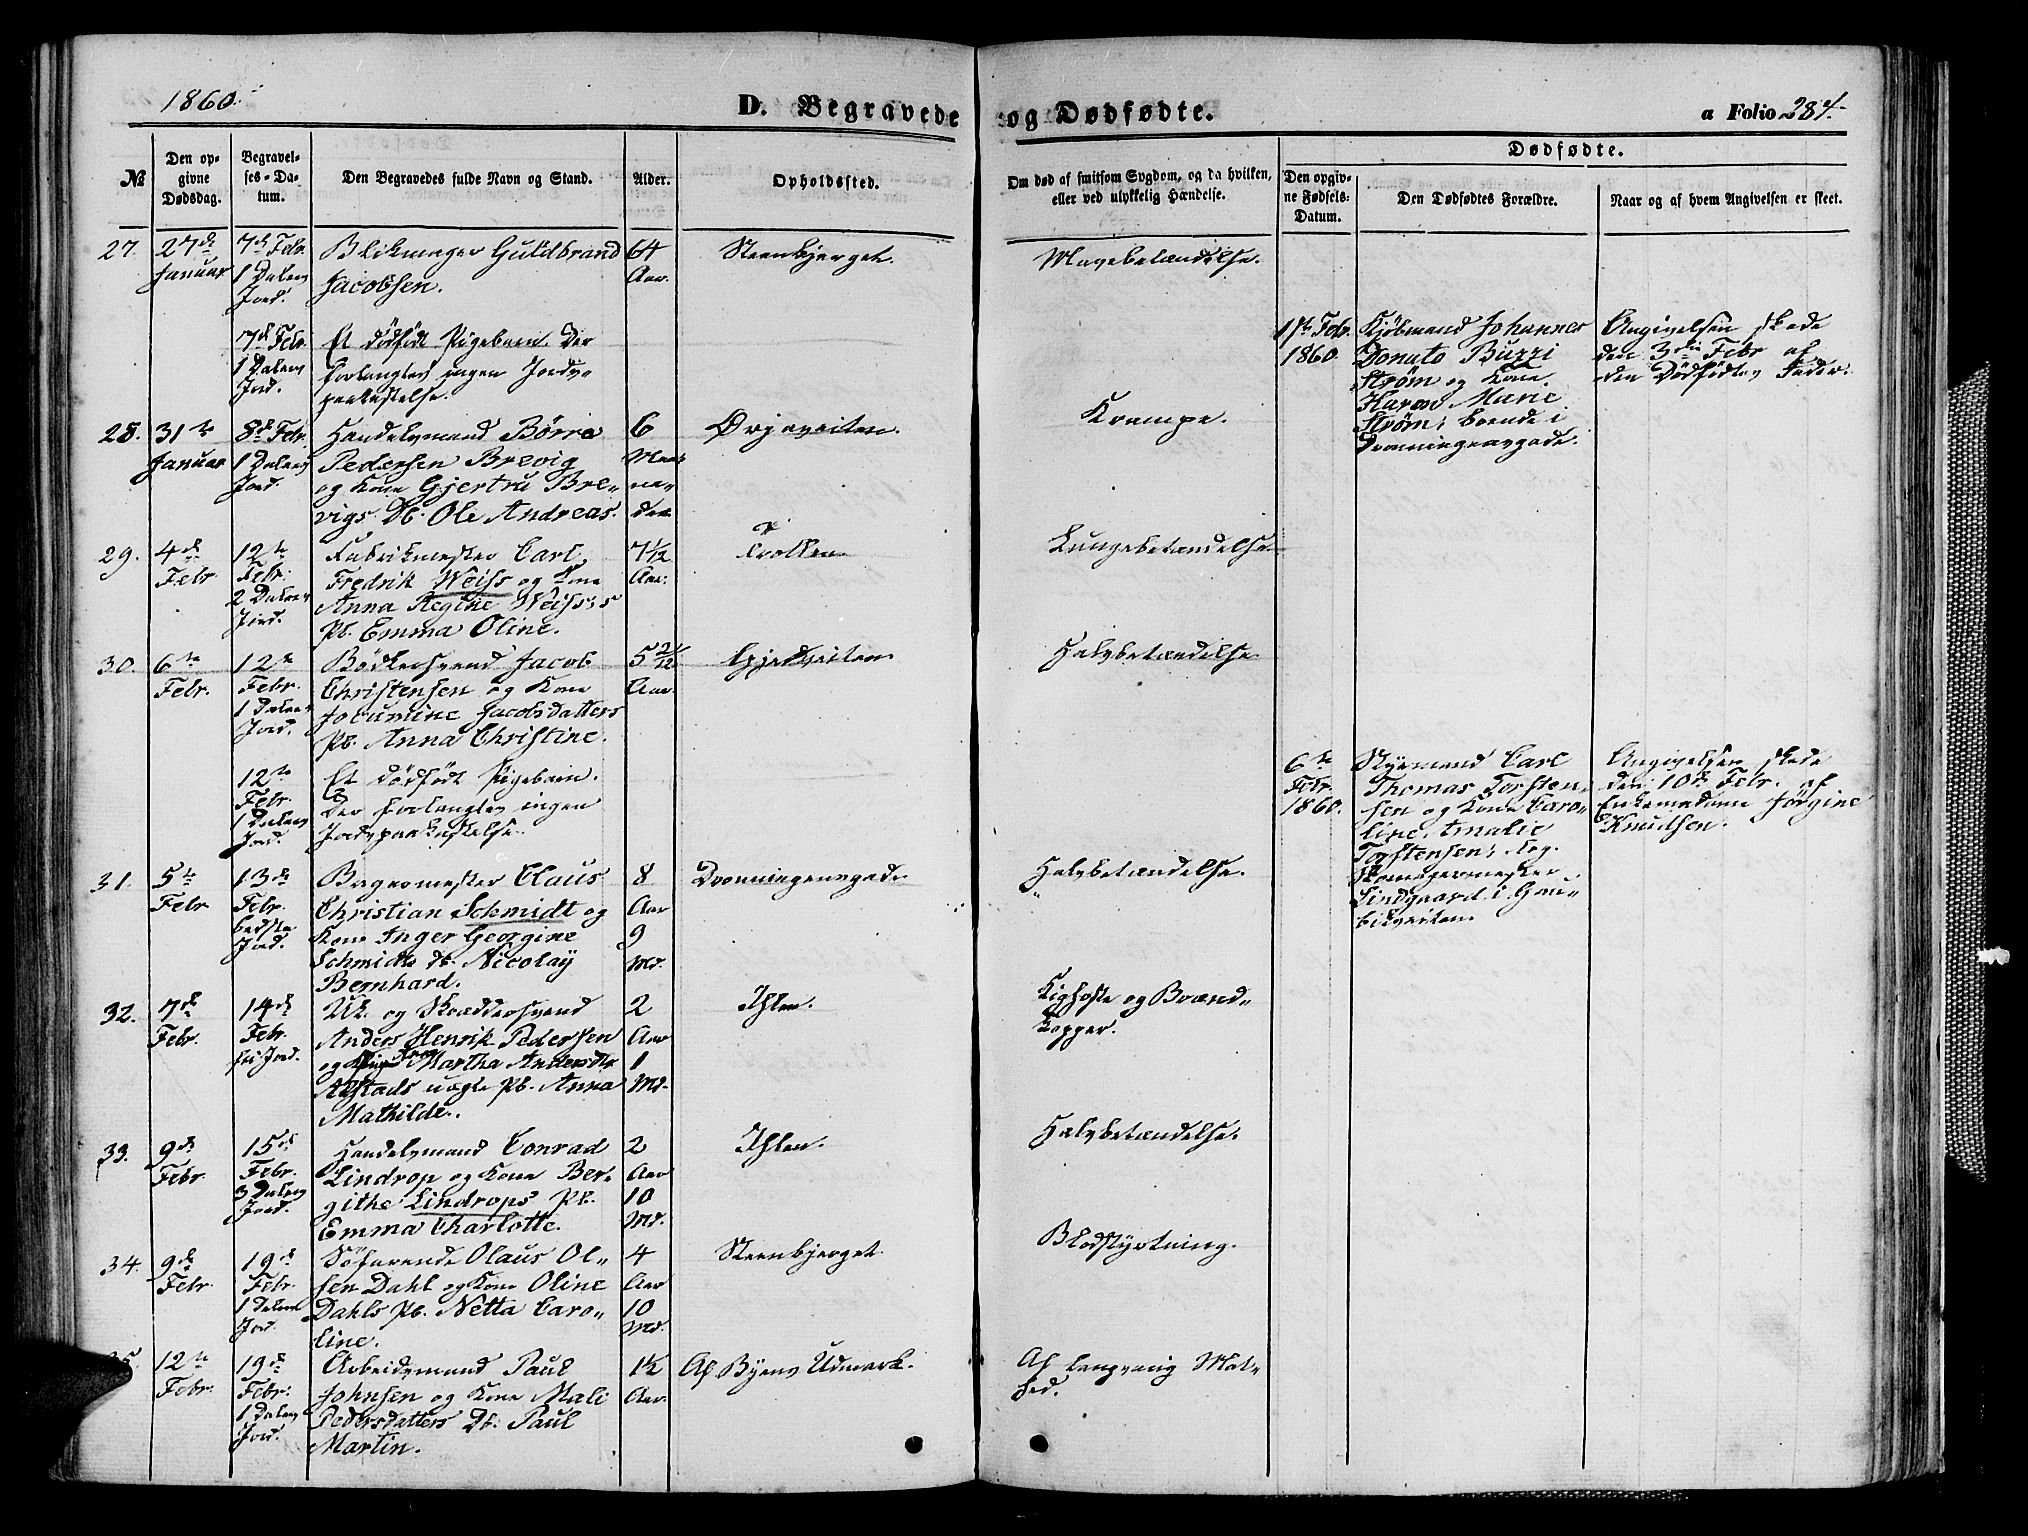 1860.
D. Begravede og Dødfødte.
a Folio 284.
№
Den op-
givne
Dødsdag.
Begravel-
ses-Da-
tum.
Den Begravedes fulde Navn og Stand.
Alder.
Opholdssted.
Om død af smitsom Sygdom, og da hvilken,
eller ved ulykkelig Hændelse.
Dødfødte.
Den opgiv-
ne Fødsels-
Datum.
Den Dødfødtes Forældre.
Naar og af hvem Angivelsen er skeet.
27.
27de
Januar
7d Febr.
1 Dalers
Jord.
Blikmager Guldbrand
Jacobsen.
64
Aar.
Steenbjerget.
Mavebetændelse.
7d Febr
1 Dalers
Jord.
Et dødfødt Pigebarn. Der
forlangtes ingen Jords-
paakastelse.
1ste Febr.
1860.
Kjøbmand Johannes
Donato Buzzi
Strøm og Kone
Karen Marie
Strøm; boende i
Dronningensgade.
Angivelsen skede
den 3die Febr af
den Dødfødtes Fader.
28.
31te
Januar
8d Febr.
1 Dalers
Jord.
Handelsmand Børre
Pedersen Brevig
og Kone Gjertru Bre-
vigs Db. Ole Andreas.
6
Maa-
ne-
der
Ørjaveiten.
Krampe.
29.
4de
Febr
12te
Febr.
2 Dalers
Jord.
Fabrikmester Carl
Fredrik Weiss og Kone
Anna Regine Weiss's
Pb. Emma Oline.
7½
Aar.
Lungebetændelse
30.
6te
Febr.
12te
Febr.
1 Dalers
Jord.
Bødkersvend Jacob
Christensen og Kone
Jocumine Jacobsdatters
Pb. Anna Christine.
5 2/12
Aar.
Gjedveiten
Halsbetændelse
12te
Febr.
1 Dalers
Jord.
Et dødfødt Pigebarn.
Der forlangtes ingen
Jordspaakastelse.
6te
Febr.
1860.
Styrmand Carl
Thomas Torsten-
sen og Kone Caro-
line Amalie
Torstensen; log.
Skomagermester
Lindgaard i Gau-
bikveiten
Angivelsen skede
den 10de Febr. af
Enkemadame Jørgine
Knudsen.
31.
5te
Febr
13de
Febr.
bedste
Jord.
Bagermester Claus
Christian Schmidt og
Kone Inger Georgine
Schmidts Db. Nicolay
Bernhard.
8
Aar
9
Md.
Dronningensgade
Halsbetændelse.
32.
7de
Febr.
14de
Febr.
fri Jord.
Uk. og Skræddersvend
Anders Henrik Pedersen
og Pige Martha Andersdtr
Alstads uægte Pb. Anna
Mathilde.
2
Aar
1
Md.
Ihlen.
Kighoste og Brænd-
kopper.
33.
9de
Febr.
15de
Febr.
3 Dalers
Jord.
Handelsmand Conrad
Lindrop og Kone Ber-
githe Lindrops Pb.
Emma Charlotte.
2
Aar
10
Md.
Ihlen.
Halsbetændelse.
34.
9de
Febr
19de
Febr.
1 Dalers
Jord.
Søfarende Olaus Ol-
sen Dahl og Kone Oline
Dahls Pb. Netta Caro-
line.
4
Aar
10
Md.
Steenbjerget.
Blodstyrtning.
35.
12te
Febr.
19de
Febr.
1 Dalers
Jord.
Arbeidsmand Paul
Johnsen og Kone Mali
Pedersdatters Db. Paul
Martin.
1½
Aar.
Af Byens Udmark.
Af langvarig Mat-
hed.